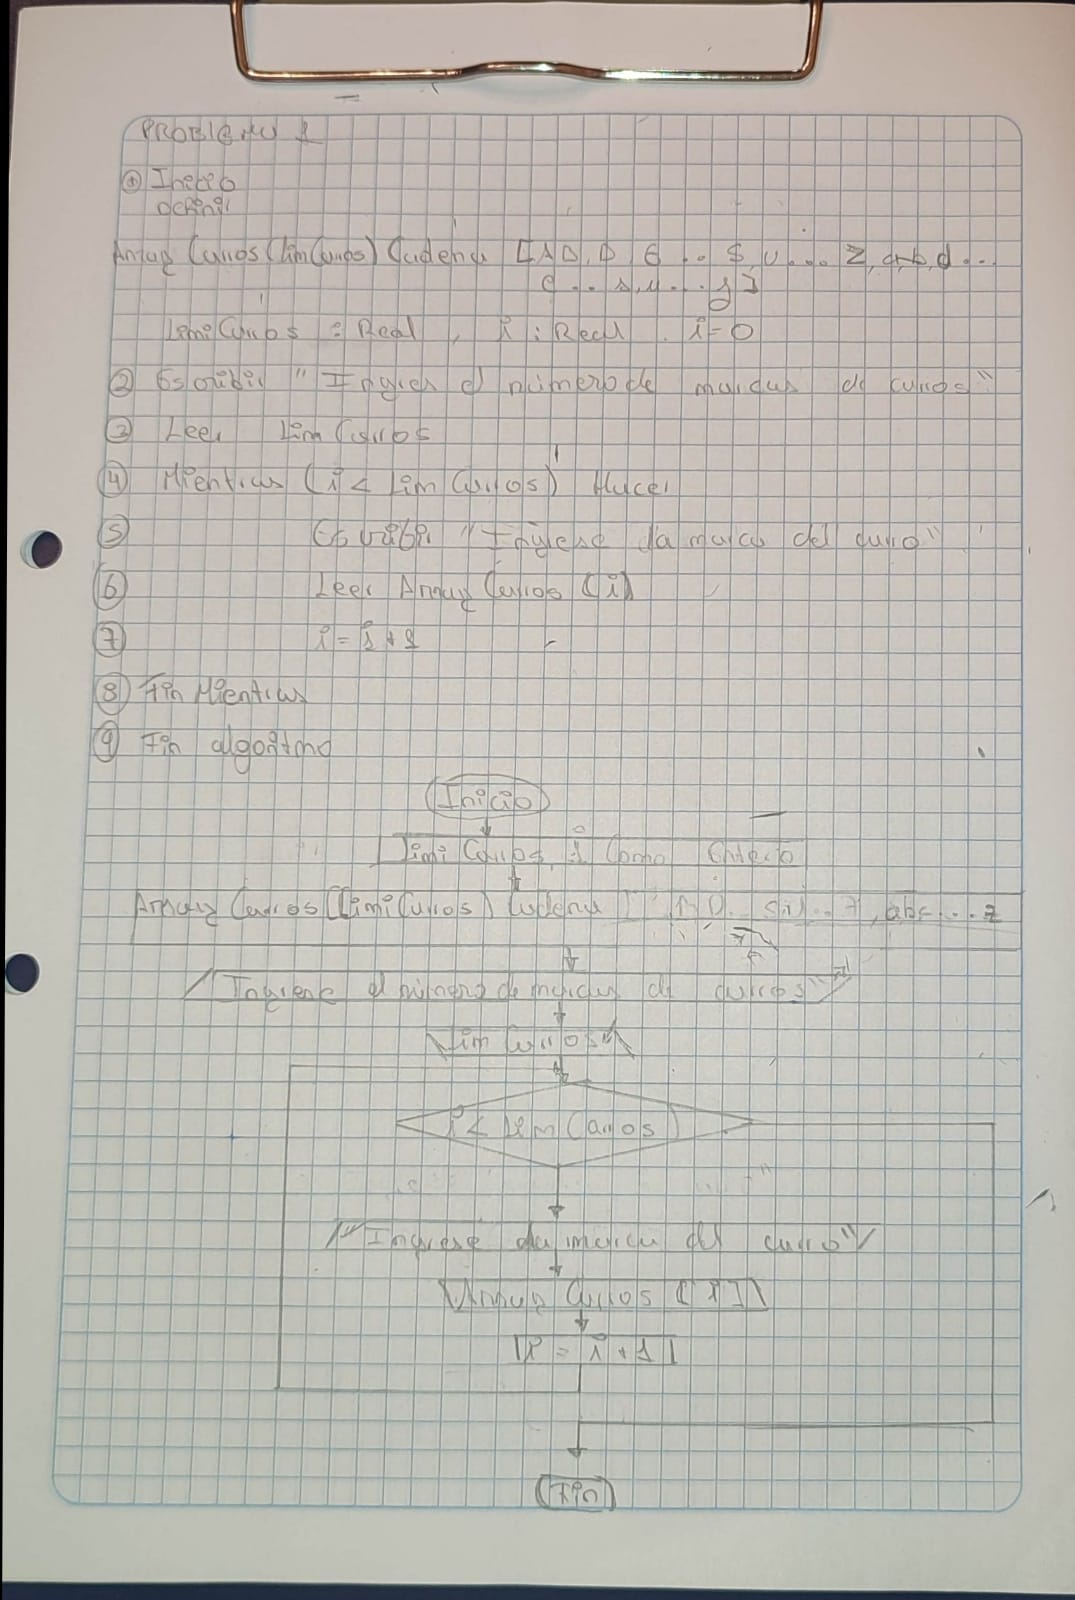 PROBlema 1
① Inicio
Definir
Array Carros (limCarros) Cadena [A, B, D, E .. S, U ... Z, a, b, d ...
e ... s, u ... z]
LimiCarros : Real , i : Real . i = 0
② Escribir "Ingrese el número de marcas de carros"
③ Leer Lim Carros
④ Mientras (i < Lim Carros) Hacer
⑤ Escribir "Ingrese la marca del carro"
⑥ Leer Array Carros (i)
⑦ i = i + 1
⑧ Fin Mientras
⑨ Fin algoritmo
Inicio
Limi Carros, i Como Entero
Array Carros (Limi Carros) Cadena
"Ingrese el número de marcas de carros"
Lim Carros
i < Lim Carros
"Ingrese la marca del carro"
Array Carros [i]
i = i + 1
Fin